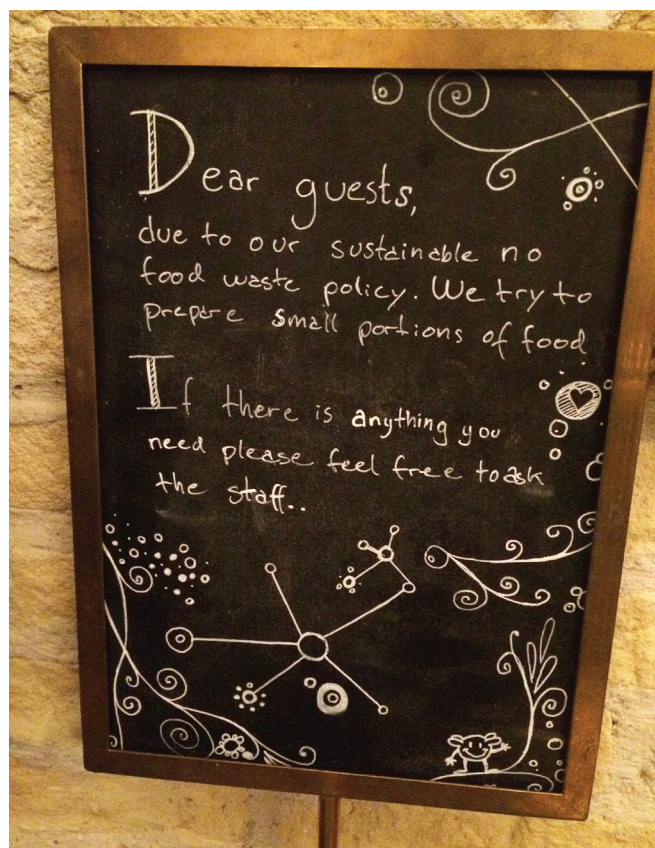 Dear guests,
due to our sustainable no
food waste policy. We try to
prepare small portions of food
If there is anything you
need please feel free to ask
the staff..